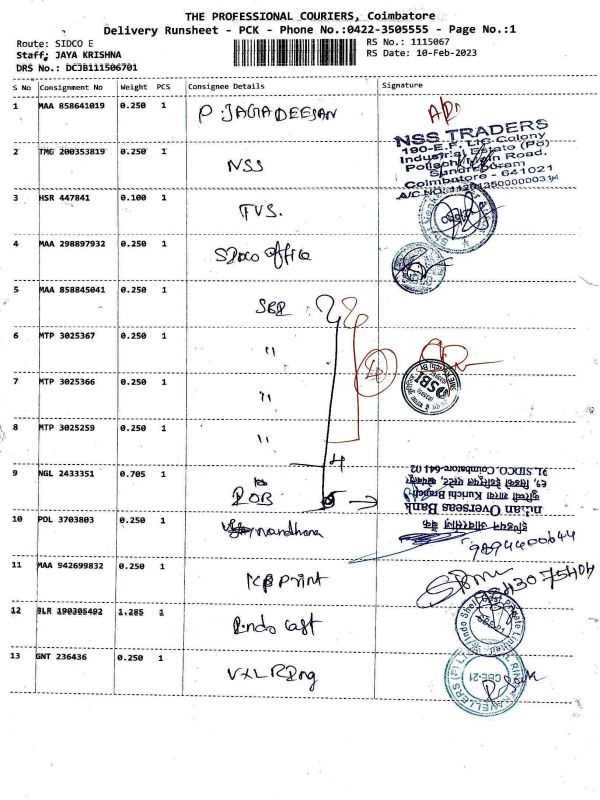 THE PROFESSIONAL COURIERS, Coimbatore
Delivery Runsheet - PCK - Phone No.:0422-3505555 - Page No.:1
Route: SIDCO E
RS No.: 1115067
Staff: JAYA KRISHNA
RS Date: 10-Feb-2023
DRS No.: DCJB111506701
S No Consignment No Weight PCS Consignee Details Signature
1 MAA 858641019 0.250 1 P. JAGADEESAN
NSS TRADERS
190-E.F. LIC Colony
Industrial Estate (Po)
Pollachi Main Road,
Sundarapuram
Coimbatore - 641021
2 TMG 200353819 0.250 1 NSS
3 HSR 447841 0.100 1 TVS.
4 MAA 298897932 0.250 1 Sidco Office
5 MAA 858845041 0.250 1 SBI
6 MTP 3025367 0.250 1 "
7 MTP 3025366 0.250 1 "
SBI
8 MTP 3025259 0.250 1 "
4
9 NGL 2433351 0.705 1 IOB
91, SIDCO, Coimbatore-641 02
Kurichi Branch
Overseas Bank
10 POL 3703803 0.250 1
9894400644
11 MAA 942699832 0.250 1 KB Print
12 BLR 190305402 1.285 1 Indo cast
13 GNT 236436 0.250 1 VXL Ring
CBE-21